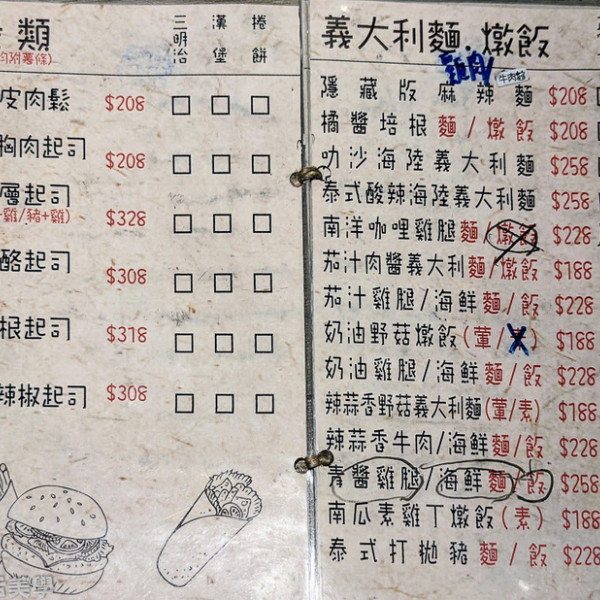 類
三明治 漢堡 捲餅
皮肉鬆 $208 □ □ □
胸肉起司 $208 □ □ □
層起司 $328 □ □ □
雞/豬+雞)
酪起司 $308 □ □ □
根起司 $318 □ □ □
辣椒起司 $308 □ □ □
義大利麵.燉飯
隱藏版麻辣麵 $208
橘醬培根麵/燉飯 $208
叻沙海陸義大利麵 $258
泰式酸辣海陸義大利麵 $258
南洋咖哩雞腿麵/燉飯 $228
茄汁肉醬義大利麵/燉飯 $188
茄汁雞腿/海鮮麵/飯 $228
奶油野菇燉飯(葷/素) $188
奶油雞腿/海鮮麵/飯 $228
辣蒜香野菇義大利麵(葷/素) $188
辣蒜香牛肉/海鮮麵/飯 $228
青醬雞腿/海鮮麵/飯 $258
南瓜素雞丁燉飯(素) $188
泰式打拋豬麵/飯 $228